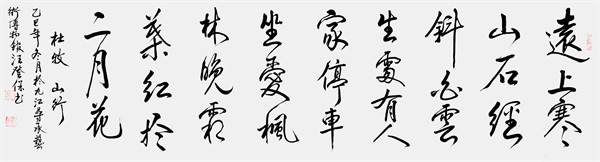 遠上寒
山石經
斜白雲
生處有人
家停車
坐愛楓
林晚霜
葉紅於
二月花
杜牧 山行
乙巳年冬月於九江
汪登保書